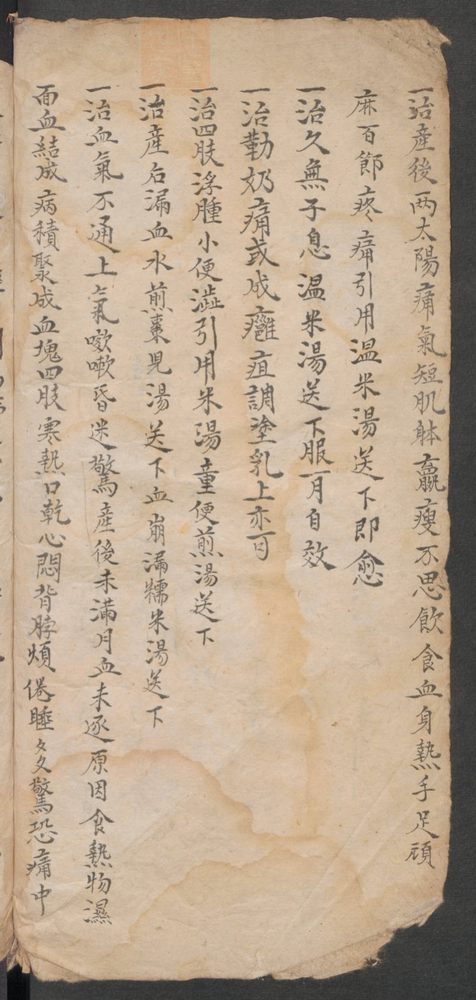 一治産後两太陽痛氣短肌躰羸瘦不思飲食血身熱手足頑
麻百節疼痛引用温米湯送下即愈
一治久無子息温米湯送下服一月自效
一治勒奶痛或成癰疽調塗乳上亦可
一治四肢浮腫小便澁引用米湯童便煎湯送下
一治産后漏血水煎棗見湯送下血崩漏糯米湯送下
一治血氣不通上氣嗽嗽昏迷驚産後未滿月血未逐原因食熱物濕
面血結成病積聚成血塊四肢寒熱口乾心悶背脖煩倦睡多驚恐痛中